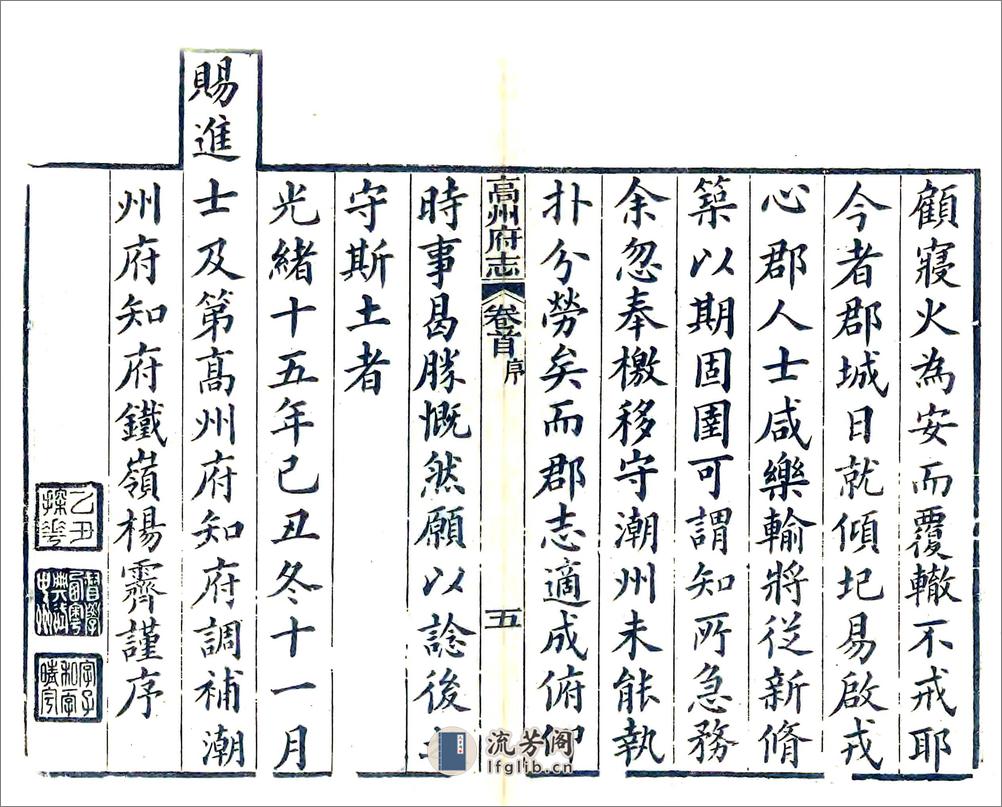 顧寢火為安而覆轍不戒耶
今者郡城日就傾圮易啟戎
心郡人士咸樂輸將從新脩
築以期固圉可謂知所急務
余忽奉檄移守潮州未能執
扑分勞矣而郡志適成俯仰
高州府志 卷首 序 五
時事曷勝慨然願以諗後之
守斯土者
光緒十五年己丑冬十一月
賜進士及第高州府知府調補潮
州府知府鐵嶺楊霽謹序
乙丑探花
字子和
流芳阁
lfglib.cn